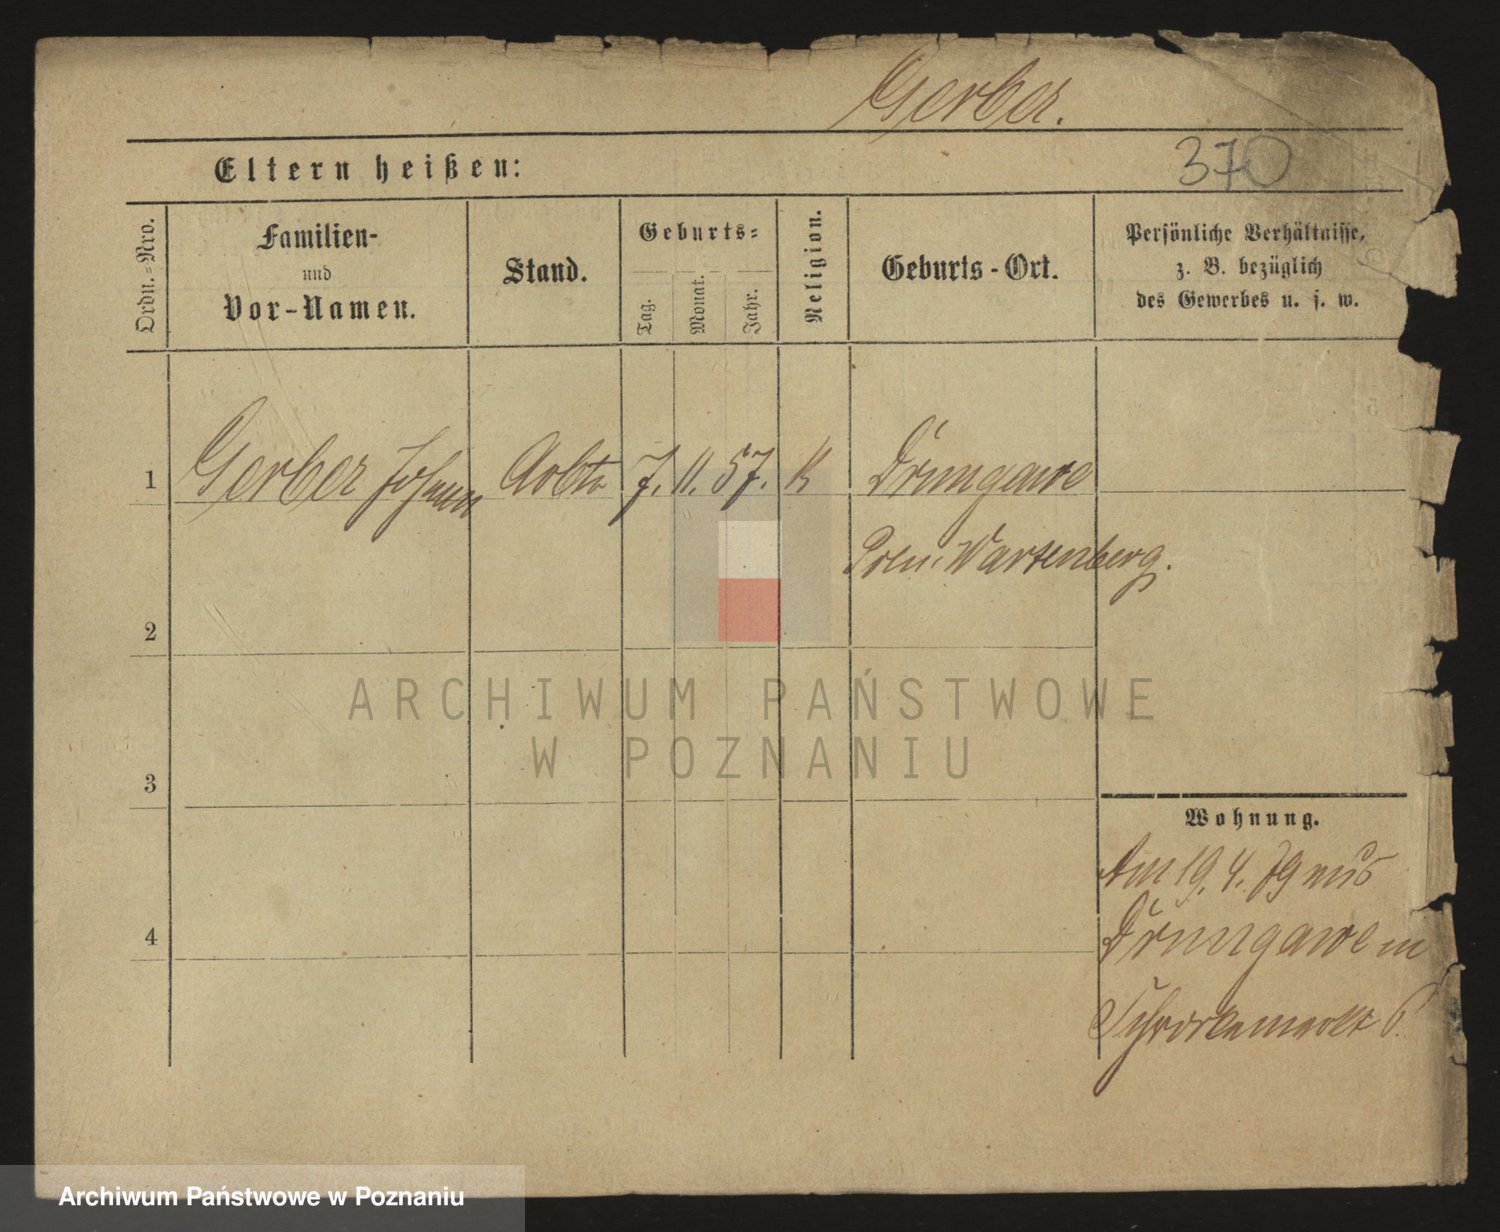 Gerber.
Eltern heißen:
370
Ordn.=Nro.
Familien-
und
Vor-Namen.
Stand.
Geburts=
Tag.
Monat.
Jahr.
Religion.
Geburts-Ort.
Persönliche Verhältnisse,
z. B. bezüglich
des Gewerbes u. s. w.
1 Gerber Johann Arbtr 7. 11. 57. K
Poln. Wartenberg.
2
ARCHIWUM PAŃSTWOWE
W POZNANIU
3
Wohnung.
Am 19. 4. 79 aus
4
6.
Archiwum Państwowe w Poznaniu